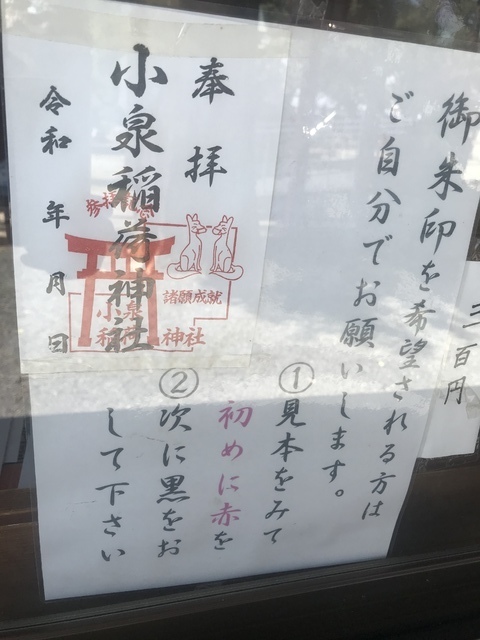 御朱印を希望される方は
ご自分でお願いします。
①見本をみて
初めに赤を
②次に黒をお
して下さい
三百円
奉拝
小泉稲荷神社
令和 年 月 日
諸願成就
小泉
稲荷神社